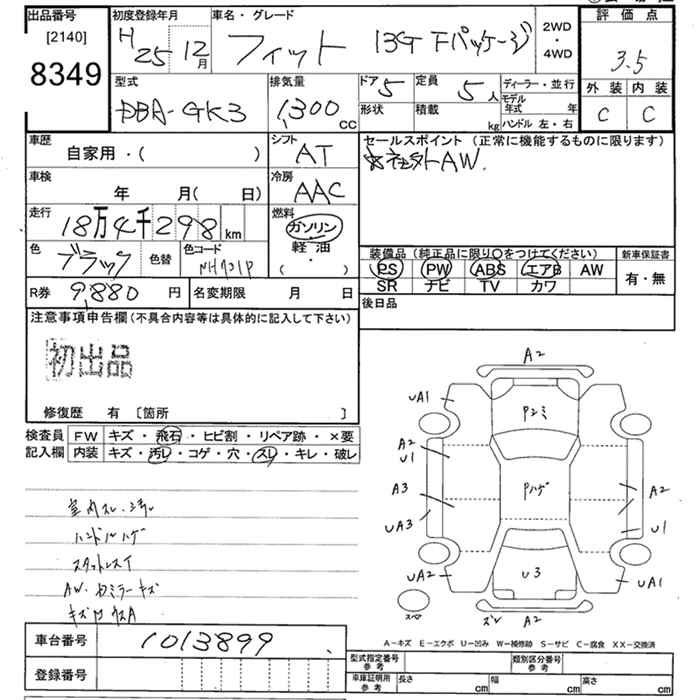 出品番号
[2140]
8349
初度登録年月
H 25 12月
車名・グレード
フィット 13G Fパッケージ
2WD
・
4WD
評価点
3.5
外装 内装
C C
型式
DBA-GK3
排気量
1,300 CC
ドア 5
形状
定員 5人
積載 kg
ディーラー・並行
モデル年式 年
ハンドル 左・右
車歴
自家用・( )
シフト
AT
セールスポイント (正常に機能するものに限ります)
☆社外AW.
車検
年 月( 日)
冷房
AAC
走行
18万4千298 km
燃料
ガソリン
軽油
・
( )
色
ブラック 色替
色コード
NH731P
装備品 (純正品に限り○をつけてください)
PS PW ABS エアB AW
SR ナビ TV カワ
新車保証書
有・無
R券 9,880 円
名変期限 月 日
後日品
注意事項申告欄 (不具合内容等は具体的に記入して下さい)
初出品
修復歴 有 〔箇所 〕
検査員
記入欄
FW キズ・飛石・ヒビ割・リペア跡・×要
内装 キズ・汚レ・コゲ・穴・スレ・キレ・破レ
室内スレ・
ハンドルハゲ
スタットレスイ
AW・ドミラーキズ
A2
UA1
Pエミ
UA1
A2
U1
Pハゲ
A3
UA3
A2
U1
UA2
U3
UA1
スペア
ズレ A2
A-キズ E-エクボ U-凹み W-補修跡 S-サビ C-腐食 XX-交換済
車台番号 1013899
登録番号
型式指定番号
参考
類別区分番号
参考
車庫証明用
参考
長さ cm 幅 cm 高さ cm